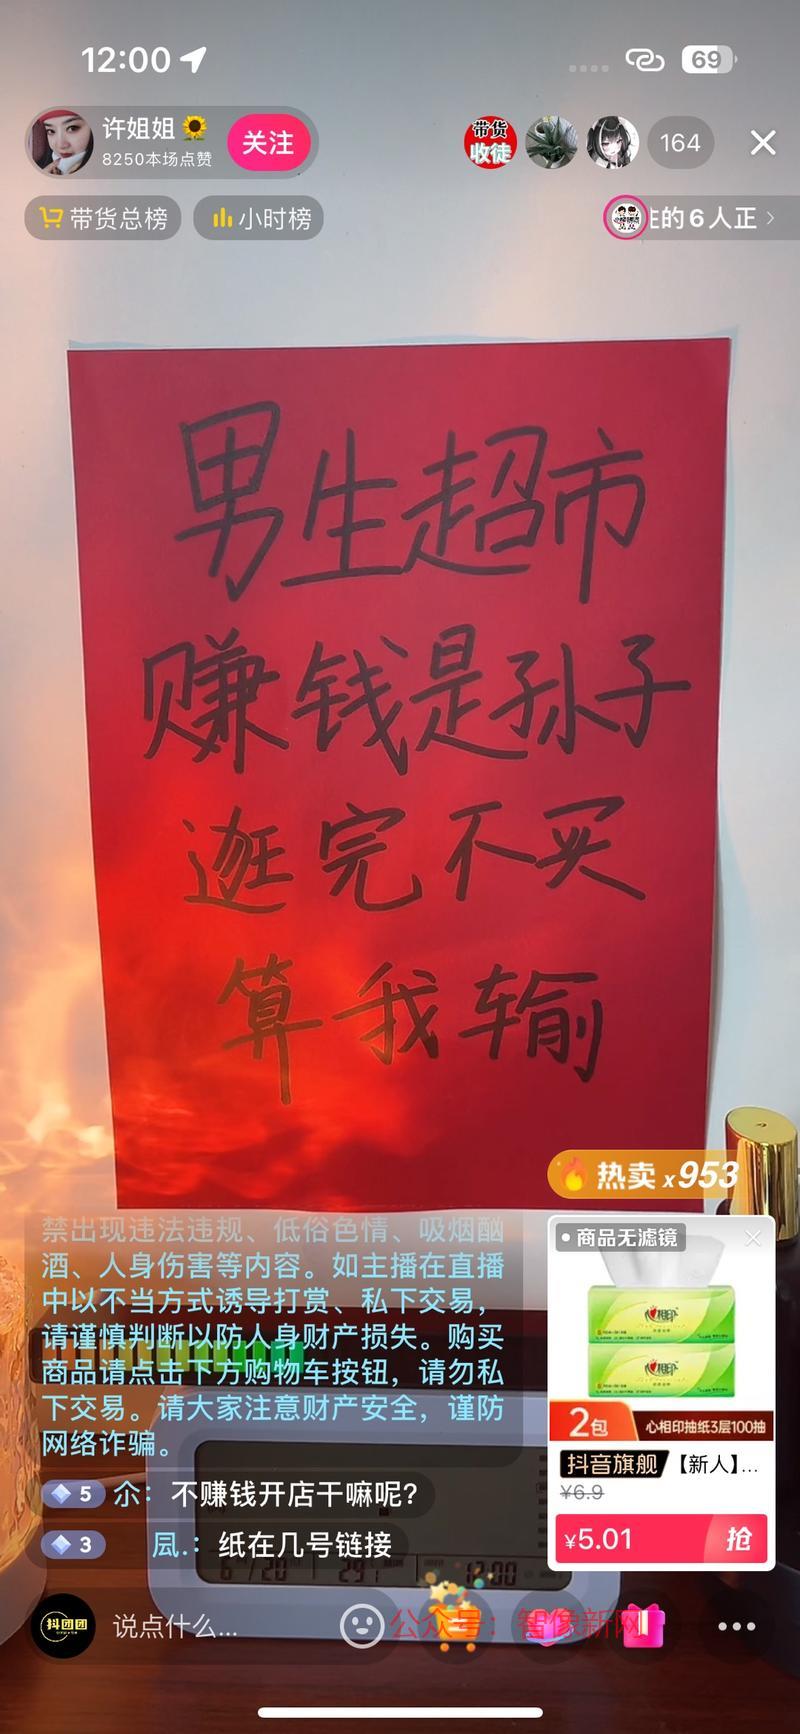 12:00
69
许姐姐🌻
8250本场点赞
关注
带货
收徒
164
带货总榜
小时榜
的6人正
男生超市
赚钱是孙子
逛完不买
算我输
热卖 x953
禁出现违法违规、低俗色情、吸烟酗
酒、人身伤害等内容。如主播在直播
中以不当方式诱导打赏、私下交易，
请谨慎判断以防人身财产损失。购买
商品请点击下方购物车按钮，请勿私
下交易。请大家注意财产安全，谨防
网络诈骗。
商品无滤镜
心相印
心相印
2包
心相印抽纸3层100抽
抖音旗舰 【新人】...
¥6.9
¥5.01
抢
5 尒：不赚钱开店干嘛呢？
3 凬.：纸在几号链接
12:00
抖团团
说点什么...
公众号：智像新网